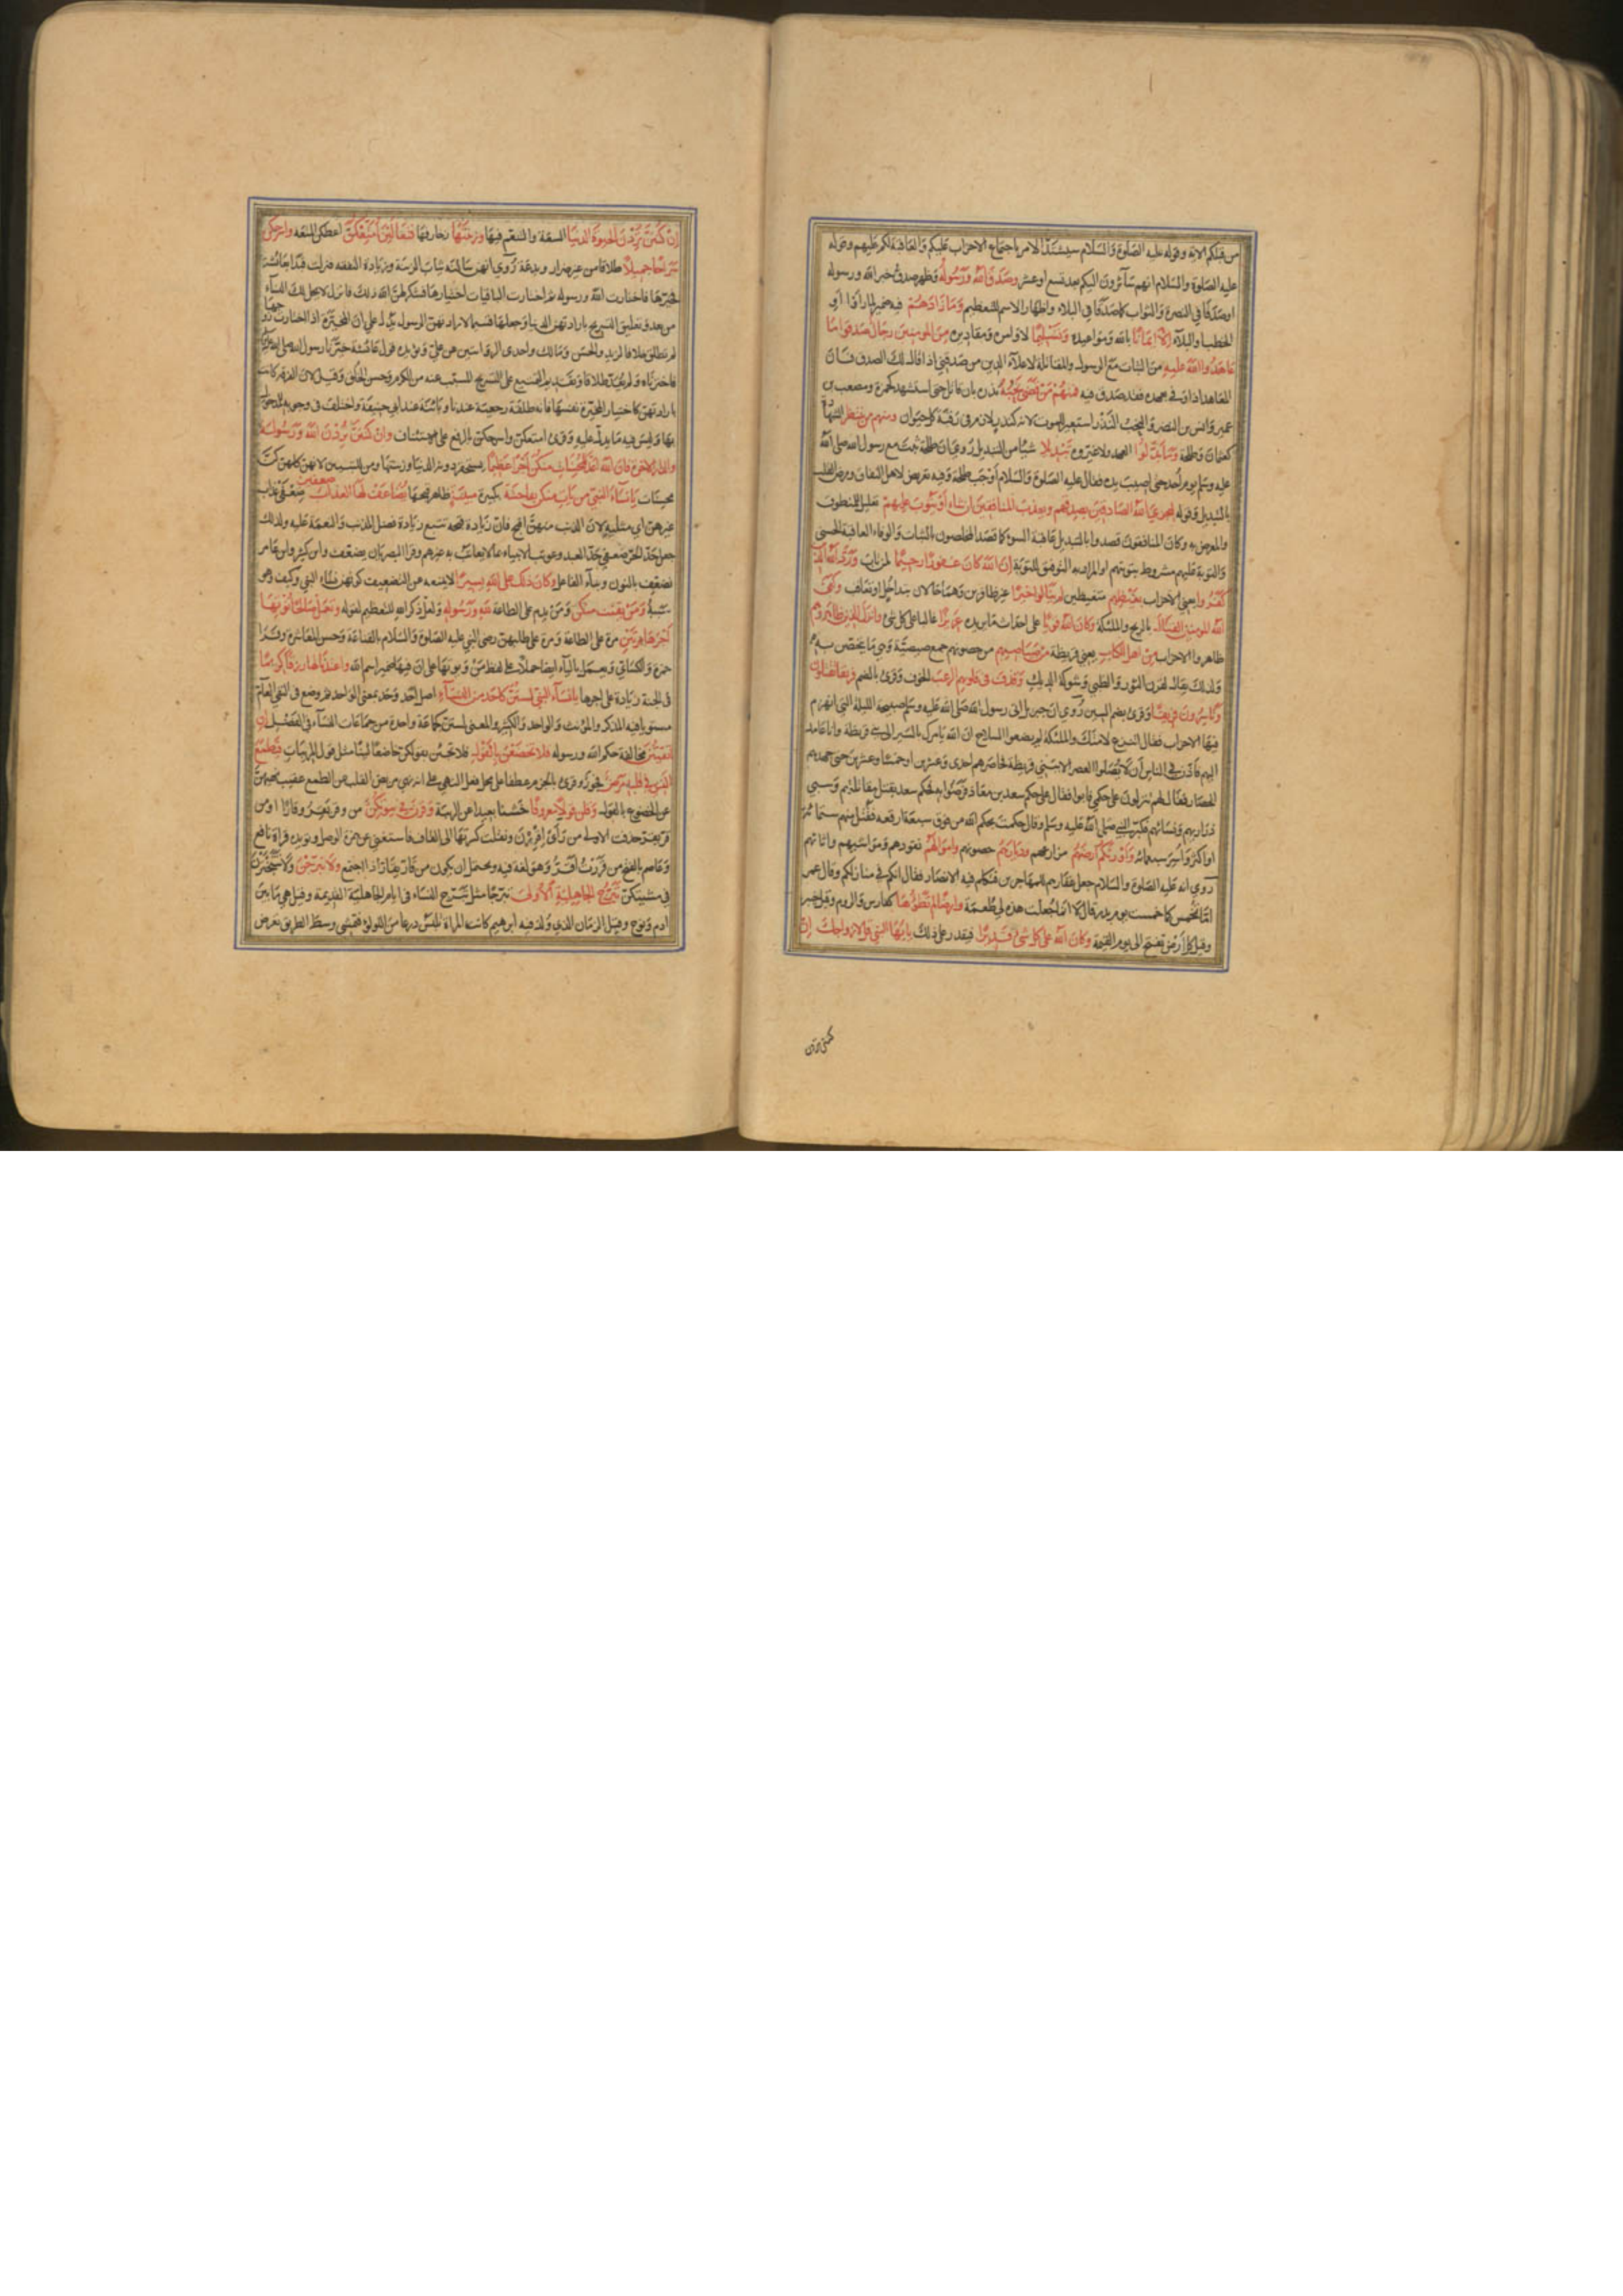 من قبلكم الآية وقوله عليه الصلوة والسلام سيشتد الامر باجتماع الاحزاب عليكم والعاقبة لكم عليهم وقوله
عليه الصلوة والسلام انهم سائرون اليكم بعد تسع او عشر وصدق الله ورسوله وظهر صدق خبر الله ورسوله
او صدقا في النصرة والثواب كما صدقا في البلاء واظهار الاسم للتعظيم وما زادهم فيه ضمير لما راوا او
الخطب او البلاء الا ايمانا بالله ومواعيده وتسليما لاوامره ومقاديره من المؤمنين رجال صدقوا ما
عاهدوا الله عليه من الثبات مع الرسول والمقاتلة لاعلاء الدين من صدقني اذا قال لك الصدق فان
المعاهد اذا وفى بعهده فقد صدق فيه فمنهم من قضى نحبه نذره بان قاتل حتى استشهد كحمزة ومصعب بن
عمير وانس بن النضر والنحب النذر استعير للموت لانه كنذر لازم في رقبة كل حيوان ومنهم من ينتظر الشهادة
كعثمان وطلحة وما بدلوا العهد ولا غيروه تبديلا شيئا من التبديل روي ان طلحة ثبت مع رسول الله صلى الله
عليه وسلم يوم احد حتى اصيبت يده فقال عليه الصلوة والسلام اوجب طلحة وفيه تعريض لاهل النفاق ومرض القلب
بالتبديل وقوله ليجزي الله الصادقين بصدقهم ويعذب المنافقين ان شاء او يتوب عليهم تعليل للمنطوق
والمعرض به وكان المنافقون قصدوا بالتبديل عاقبة السوء كما قصد المخلصون بالثبات والوفاء العاقبة الحسنى
والتوبة عليهم مشروطة بتوبتهم او المراد به التوفيق للتوبة ان الله كان غفورا رحيما لمن تاب ورد الله الذين
كفروا يعني الاحزاب بغيظهم متغيظين لم ينالوا خيرا غير ظافرين وهما حالان بتداخل او تعاقب وكفى
الله المؤمنين القتال بالريح والملئكة وكان الله قويا على احداث ما يريده عزيزا غالبا على كل شيء وانزل الذين ظاهروهم
ظاهروا الاحزاب من اهل الكتاب يعني قريظة من صياصيهم من حصونهم جمع صيصية وهي ما يتحصن به
ولذلك يقال لقرن الثور والظبي وشوكة الديك وقذف في قلوبهم الرعب الخوف وقرئ بالضم فريقا تقتلون
وتاسرون فريقا وقرئ بضم السين روي ان جبريل اتى رسول الله صلى الله عليه وسلم صبيحة الليلة التي انهزم
فيها الاحزاب فقال اتنزع لامتك والملئكة لم يضعوا السلاح ان الله يامرك بالسير الى بني قريظة وانا عامد
اليهم فاذن في الناس ان لا يصلوا العصر الا ببني قريظة فحاصرهم احدى وعشرين او خمسا وعشرين حتى جهدهم
الحصار فقال لهم تنزلون على حكمي فابوا فقال على حكم سعد بن معاذ فرضوا به فحكم سعد بقتل مقاتليهم وسبي
ذراريهم ونسائهم فكبر النبي صلى الله عليه وسلم وقال حكمت بحكم الله من فوق سبعة ارقعة فقتل منهم ستمائة
او اكثر واسر سبعمائة واورثكم ارضهم مزارعهم وديارهم حصونهم واموالهم نقودهم ومواشيهم واثاثهم
روي انه عليه الصلوة والسلام جعل عقارهم للمهاجرين فتكلم فيه الانصار فقال انكم في منازلكم وقال عمر
اما تخمس كما خمست يوم بدر قال لا انما جعلت هذه لي طعمة وارضا لم تطؤها كفارس والروم وقيل خيبر
وقيل كل ارض تفتح الى يوم القيمة وكان الله على كل شيء قديرا فيقدر على ذلك يا ايها النبي قل لازواجك ان
كنتن تردن
ان كنتن تردن الحيوة الدنيا السعة والتنعم فيها وزينتها زخارفها فتعالين امتعكن اعطكن المتعة واسرحكن
سراحا جميلا طلاقا من غير ضرار وبدعة روي انهن سالنه ثياب الزينة وزيادة النفقة فنزلت فبدا بعائشة
فخيرها فاختارت الله ورسوله ثم اختارت الباقيات اختيارها فشكر لهن الله ذلك فانزل لا يحل لك النساء
من بعد وتعليق التسريح بارادتهن الدنيا وجعلها قسيما لارادتهن الرسول يدل على ان المخيرة اذا اختارت زوجها
لم تطلق خلافا لزيد والحسن ومالك واحدى الروايتين عن علي ويؤيده قول عائشة خيرنا رسول الله صلى الله عليه
فاخترناه ولم يعد طلاقا وتقديم التمتيع على التسريح المسبب عنه من الكرم وحسن الخلق وقيل لان الفرقة كانت
بارادتهن كاختيار المخيرة نفسها فانه طلقة رجعية عندنا وبائنة عند ابي حنيفة واختلف في وجوبه للمدخول
بها وليس فيه ما يدل عليه وقرئ امتعكن واسرحكن بالرفع على الاستئناف وان كنتن تردن الله ورسوله
والدار الاخرة فان الله اعد للمحسنات منكن اجرا عظيما يستحقر دونه الدنيا وزينتها ومن للتبيين لانهن كلهن كن
محسنات يا نساء النبي من يات منكن بفاحشة كبيرة مبينة ظاهر قبحها يضاعف لها العذاب ضعفين ضعفي عذاب
غيرهن اي مثليه لان الذنب منهن اقبح فان زيادة قبحه تتبع زيادة فضل المذنب والنعمة عليه ولذلك
جعل حد الحر ضعفي حد العبد وعوتب الانبياء بما لا يعاتب به غيرهم وقرا البصريان يضعف وابن كثير وابن عامر
نضعف بالنون وبناء الفاعل وكان ذلك على الله يسيرا لا يمنعه عن التضعيف كونهن نساء النبي وكيف وهو
سببه ومن يقنت منكن ومن يدم على الطاعة لله ورسوله ولعل ذكر الله للتعظيم لقوله وتعمل صالحا نؤتها
اجرها مرتين مرة على الطاعة ومرة على طلبهن رضى النبي عليه الصلوة والسلام بالقناعة وحسن المعاشرة وقرا
حمزة والكسائي ويعمل بالياء ايضا حملا على لفظ من ويؤتها على ان فيها ضمير اسم الله واعتدنا لها رزقا كريما
في الجنة زيادة على اجرها يا نساء النبي لستن كاحد من النساء اصل احد وحد بمعنى الواحد ثم وضع في النفي العام
مستويا فيه المذكر والمؤنث والواحد والكثير والمعنى لستن كجماعة واحدة من جماعات النساء في الفضل ان
اتقيتن مخالفة حكم الله ورسوله فلا تخضعن بالقول فلا تجئن بقولكن خاضعا لينا مثل قول المريبات فيطمع
الذي في قلبه مرض فجور وقرئ بالجزم عطفا على محل فعل النهي على انه نهي مريض القلب عن الطمع عقيب نهيهن
عن الخضوع بالقول وقلن قولا معروفا حسنا بعيدا عن الريبة وقرن في بيوتكن من وقر يقر وقارا او من
قر يقر حذفت الاولى من رائي اقررن ونقلت كسرتها الى القاف فاستغني عن همزة الوصل ويؤيده قراءة نافع
وعاصم بالفتح من قررت اقر وهو لغة فيه ويحتمل ان يكون من قار يقار اذا اجتمع ولا تبرجن ولا تتبخترن
في مشيتكن تبرج الجاهلية الاولى تبرجا مثل تبرج النساء في ايام الجاهلية القديمة وقيل هي ما بين
ادم ونوح وقيل الزمان الذي ولد فيه ابرهيم كانت المراة تلبس درعا من اللؤلؤ فتمشي وسط الطريق تعرض